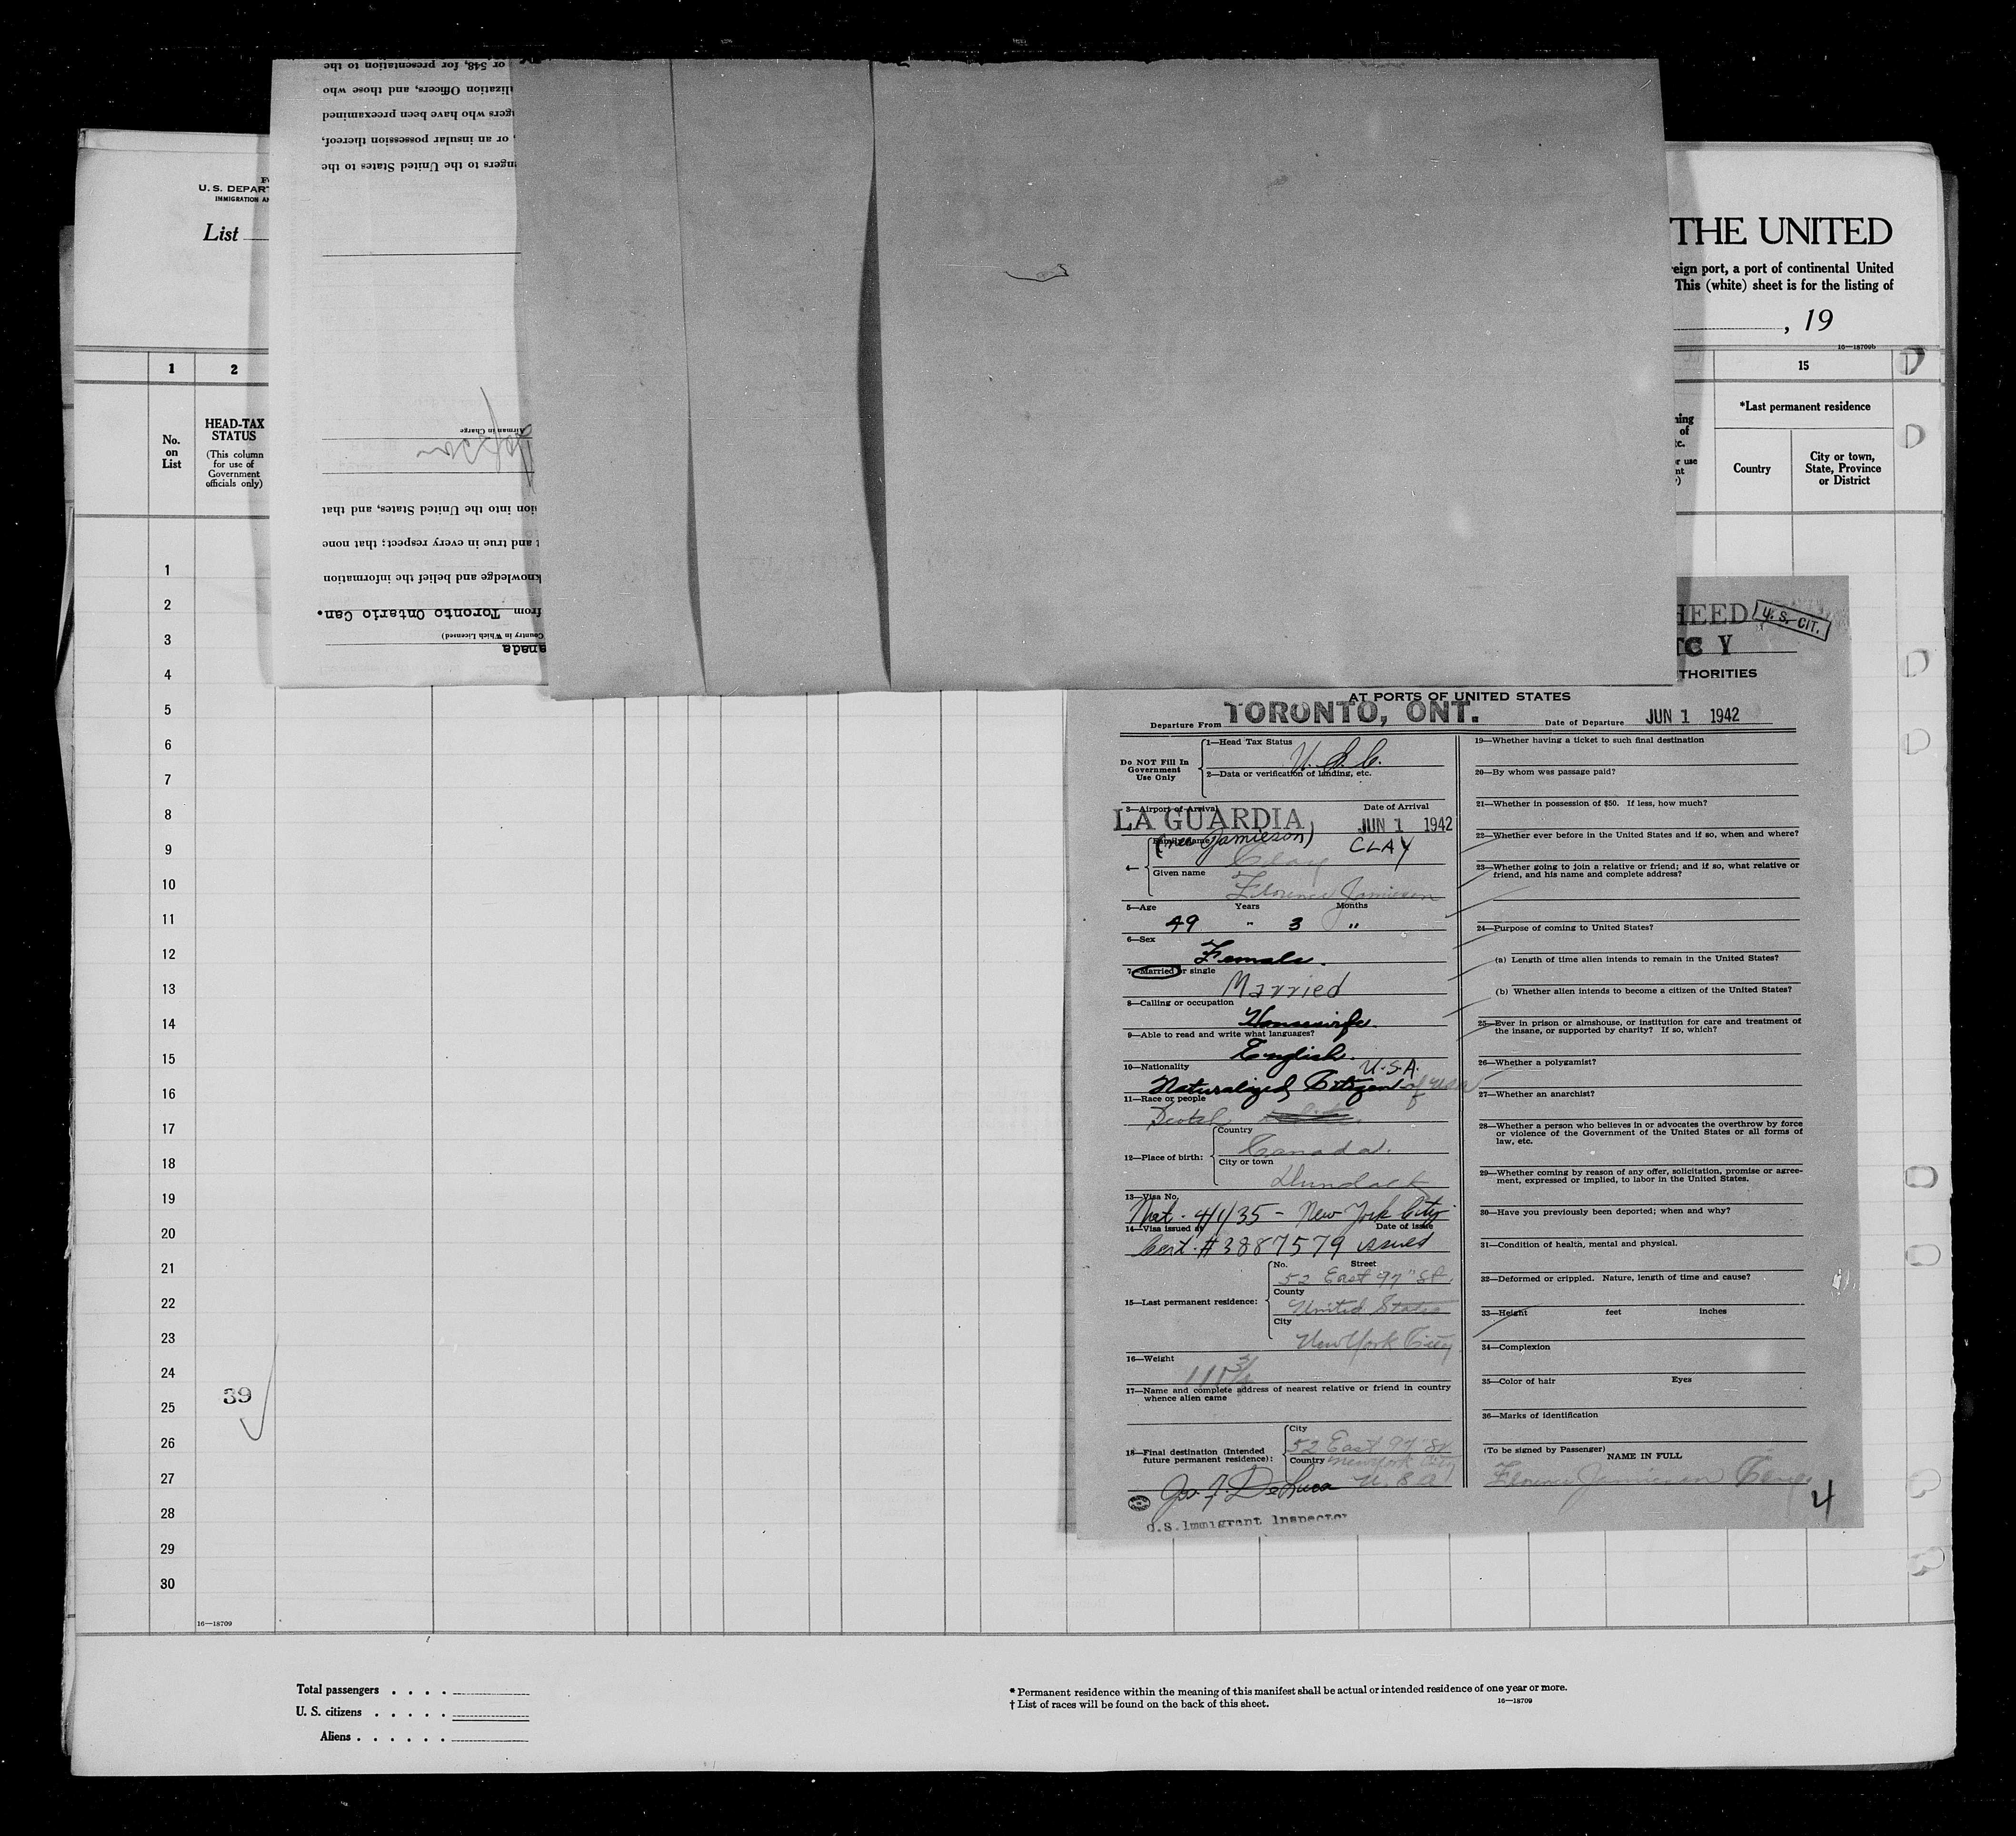 or 548, for presentation to the
lization Officers, and those who
gers who have been preexamined
, or an insular possession thereof,
ngers to the United States to the
Airman in Charge
ion into the United States, and that
t and true in every respect; that none
knowledge and belief the information
from Toronto Ontario Can.
Country in Which Licensed)
anada
U. S. DEPART
IMMIGRATION AN
List
THE UNITED
eign port, a port of continental United
This (white) sheet is for the listing of
, 19
16—18709b
1
2
15
No.
on
List
HEAD-TAX
STATUS
(This column
for use of
Government
officials only)
ning
of
tc.
r use
nt
)
*Last permanent residence
Country
City or town,
State, Province
or District
1
2
3
4
5
6
7
8
9
10
11
12
13
14
15
16
17
18
19
20
21
22
23
24
25
26
27
28
29
30
39
16—18709
HEED
U. S. CIT.
TC Y
THORITIES
AT PORTS OF UNITED STATES
Departure From TORONTO, ONT. Date of Departure JUN 1 1942
Do NOT Fill In
Government
Use Only
1—Head Tax Status U.S.C.
2—Data or verification of landing, etc.
3—Airport of Arrival Date of Arrival
LA GUARDIA JUN 1 1942
4— Family name (nee Jamieson) CLAY
Clay
Given name
Florence Jamieson
5—Age Years Months
49 " 3 "
6—Sex
Female.
7—Married or single
Married
8—Calling or occupation
Housewife.
9—Able to read and write what languages?
English.
10—Nationality U.S.A.
Naturalized Citizen of USA
11—Race or people
Scotch
12—Place of birth:
Country
Canada.
City or town
Dundalk
13—Visa No.
Nat. 4/1/35 - New York City
14—Visa issued at Date of issue
Cert. #3887579 issued
15—Last permanent residence:
No. Street
52 East 97" St.
County
United States
City
New York City
16—Weight
17—Name and complete address of nearest relative or friend in country
whence alien came
18—Final destination (Intended
future permanent residence):
City
52 East 97" St
Country New York City
U.S.A.
Jos. F. DeLuca
U.S. Immigrant Inspector
19—Whether having a ticket to such final destination
20—By whom was passage paid?
21—Whether in possession of $50. If less, how much?
22—Whether ever before in the United States and if so, when and where?
23—Whether going to join a relative or friend; and if so, what relative or
friend, and his name and complete address?
24—Purpose of coming to United States?
(a) Length of time alien intends to remain in the United States?
(b) Whether alien intends to become a citizen of the United States?
25—Ever in prison or almshouse, or institution for care and treatment of
the insane, or supported by charity? If so, which?
26—Whether a polygamist?
27—Whether an anarchist?
28—Whether a person who believes in or advocates the overthrow by force
or violence of the Government of the United States or all forms of
law, etc.
29—Whether coming by reason of any offer, solicitation, promise or agree-
ment, expressed or implied, to labor in the United States.
30—Have you previously been deported; when and why?
31—Condition of health, mental and physical.
32—Deformed or crippled. Nature, length of time and cause?
33—Height feet inches
34—Complexion
35—Color of hair Eyes
36—Marks of identification
(To be signed by Passenger)
NAME IN FULL
Florence Jamieson Clay
4
Total passengers . . . .
U. S. citizens . . . . .
Aliens . . . . . .
* Permanent residence within the meaning of this manifest shall be actual or intended residence of one year or more.
† List of races will be found on the back of this sheet.
16—18709